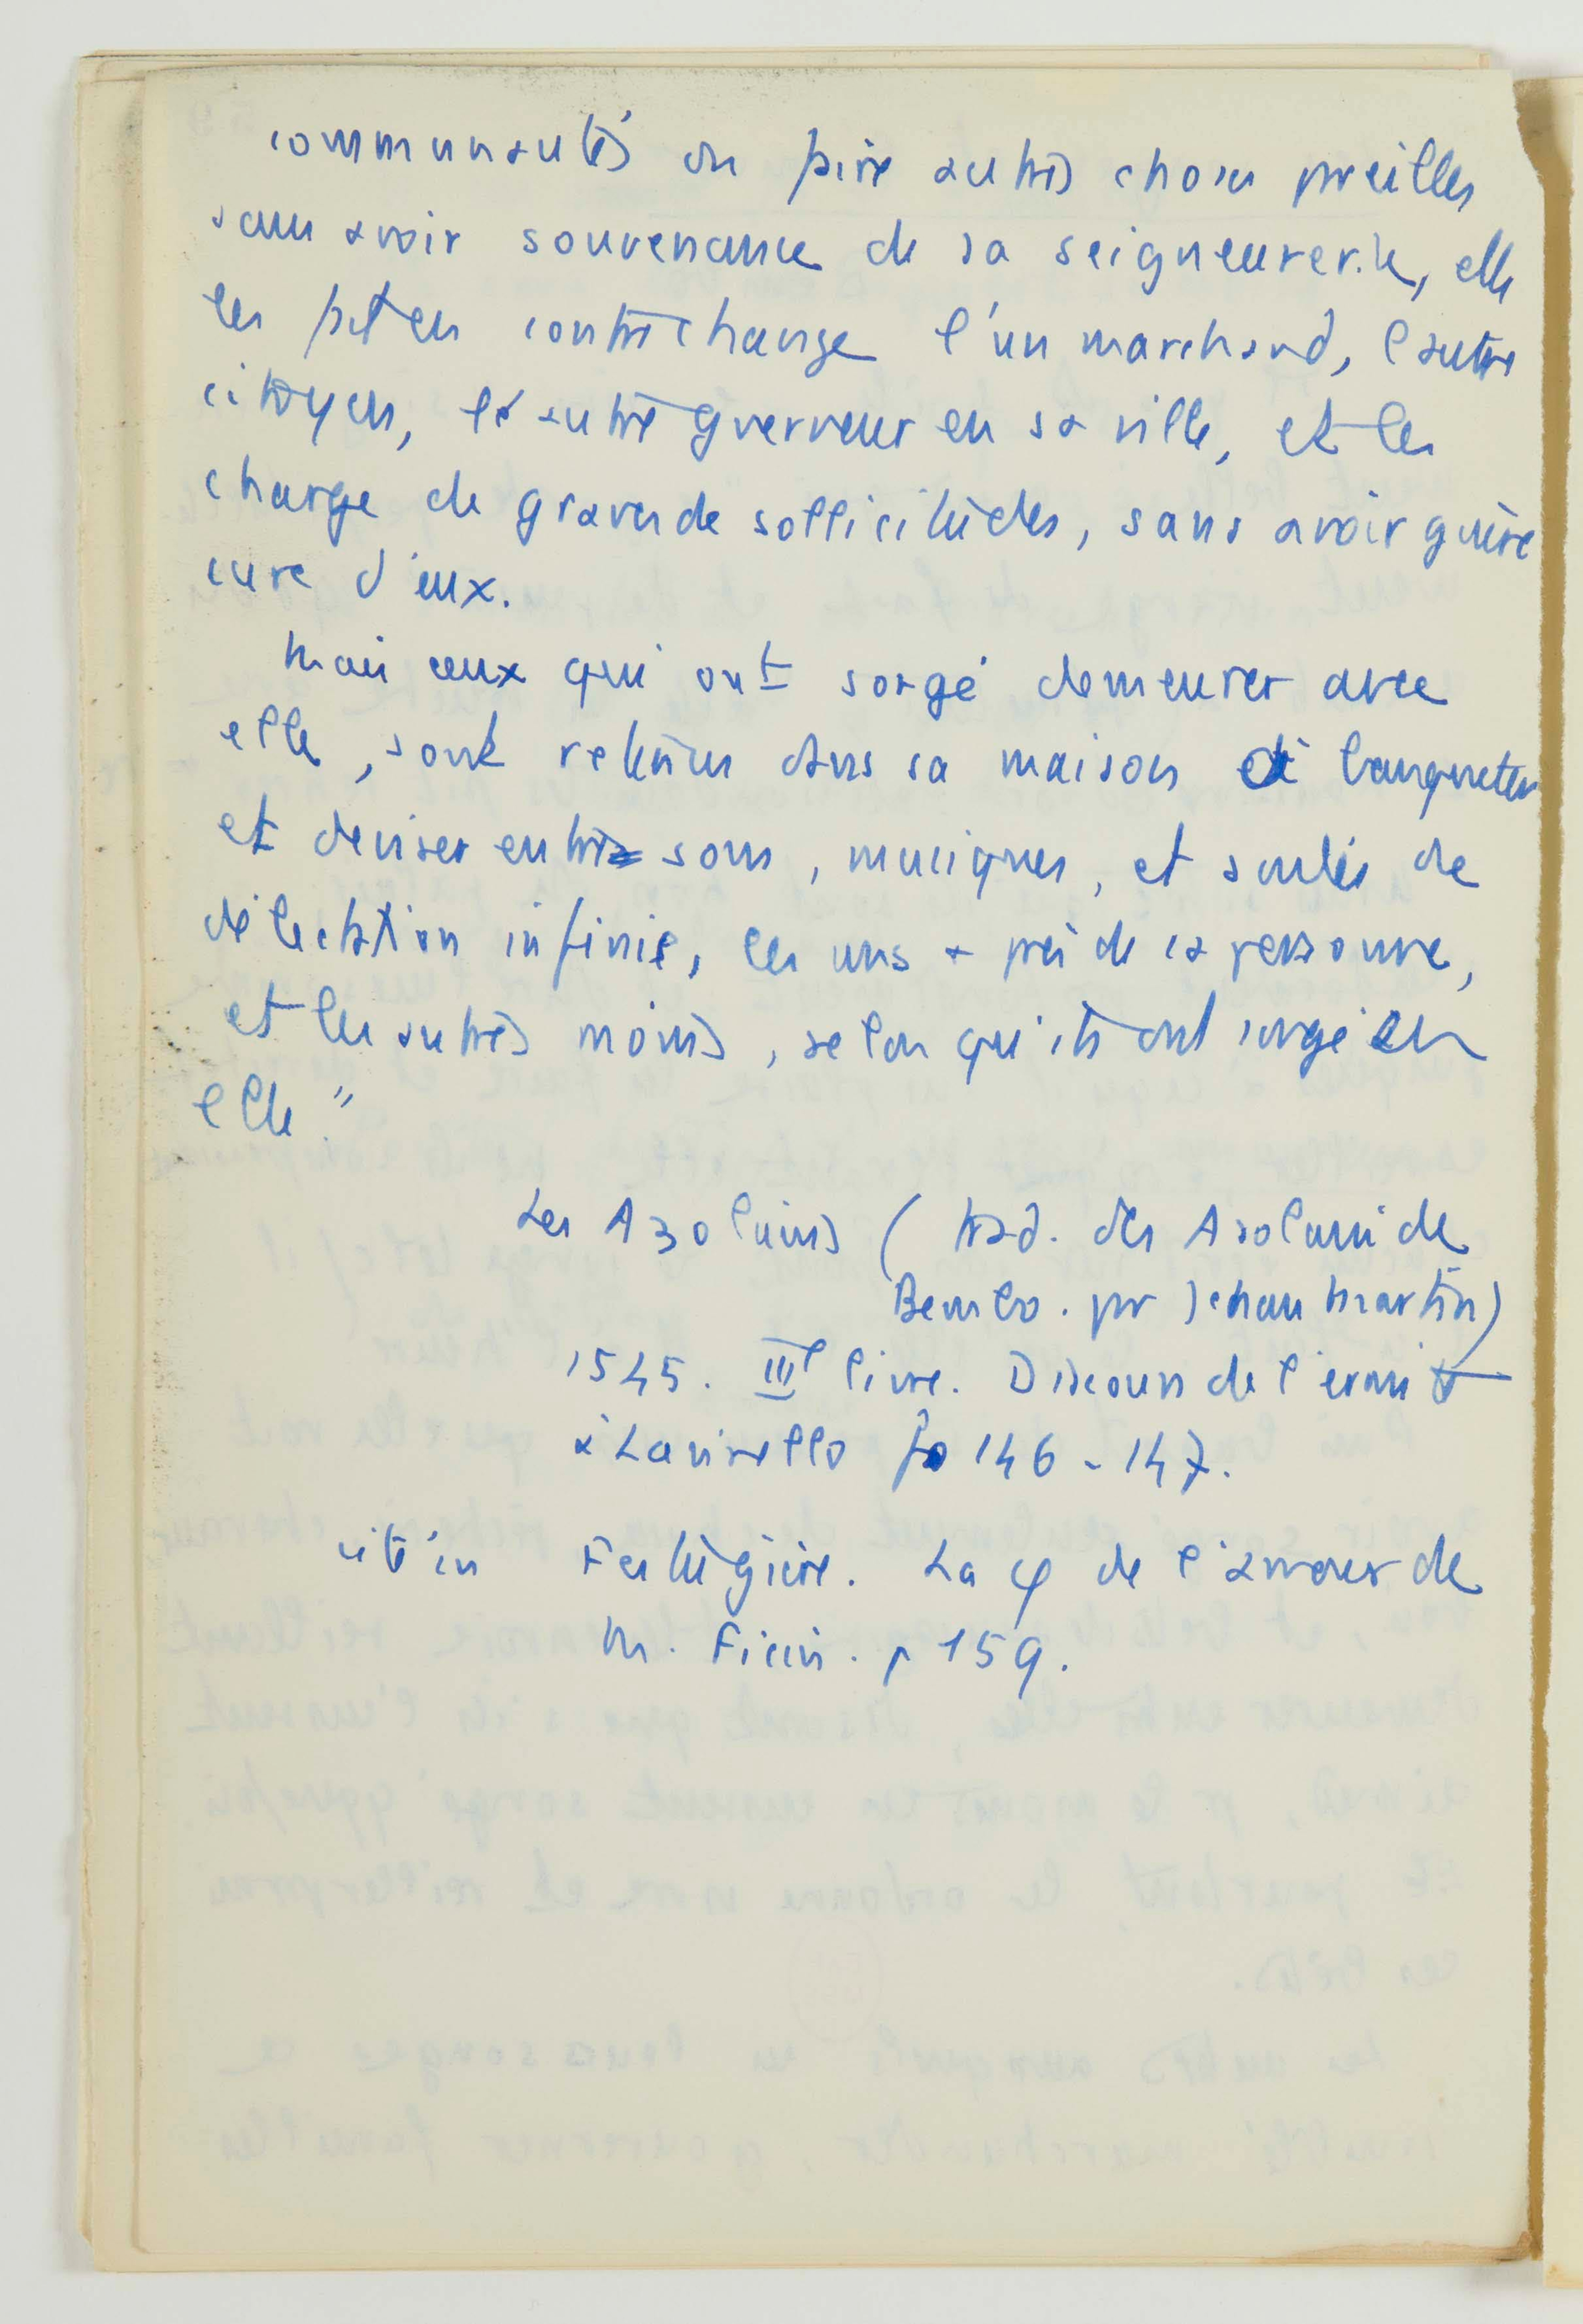 communautés ou faire autres choses pareilles
sans avoir souvenance de sa seigneurerie, elle
les fait en contrechange l'un marchand, l'autre
citoyen, l'autre gverneur en sa ville, et les
charge de graves de sollicitudes, sans avoir guère
cure d'eux.
Mais ceux qui ont songé demeurer avec
elle, sont retenus dans sa maison à banqueter
et deviser entre sons, musiques, et soulas de
délectation infinie, les uns + près de sa personne,
et les autres moins, selon qu'ils ont songé en
elle."
Les Azolains (trad. des Asolani de
Bembo. par Jehan Martin)
1545. IIIe livre. Discours de l'ermite
à Lavinello fo 146-147.
cité in Festugière. La φ de l'amour de
M. Ficin. p 159.